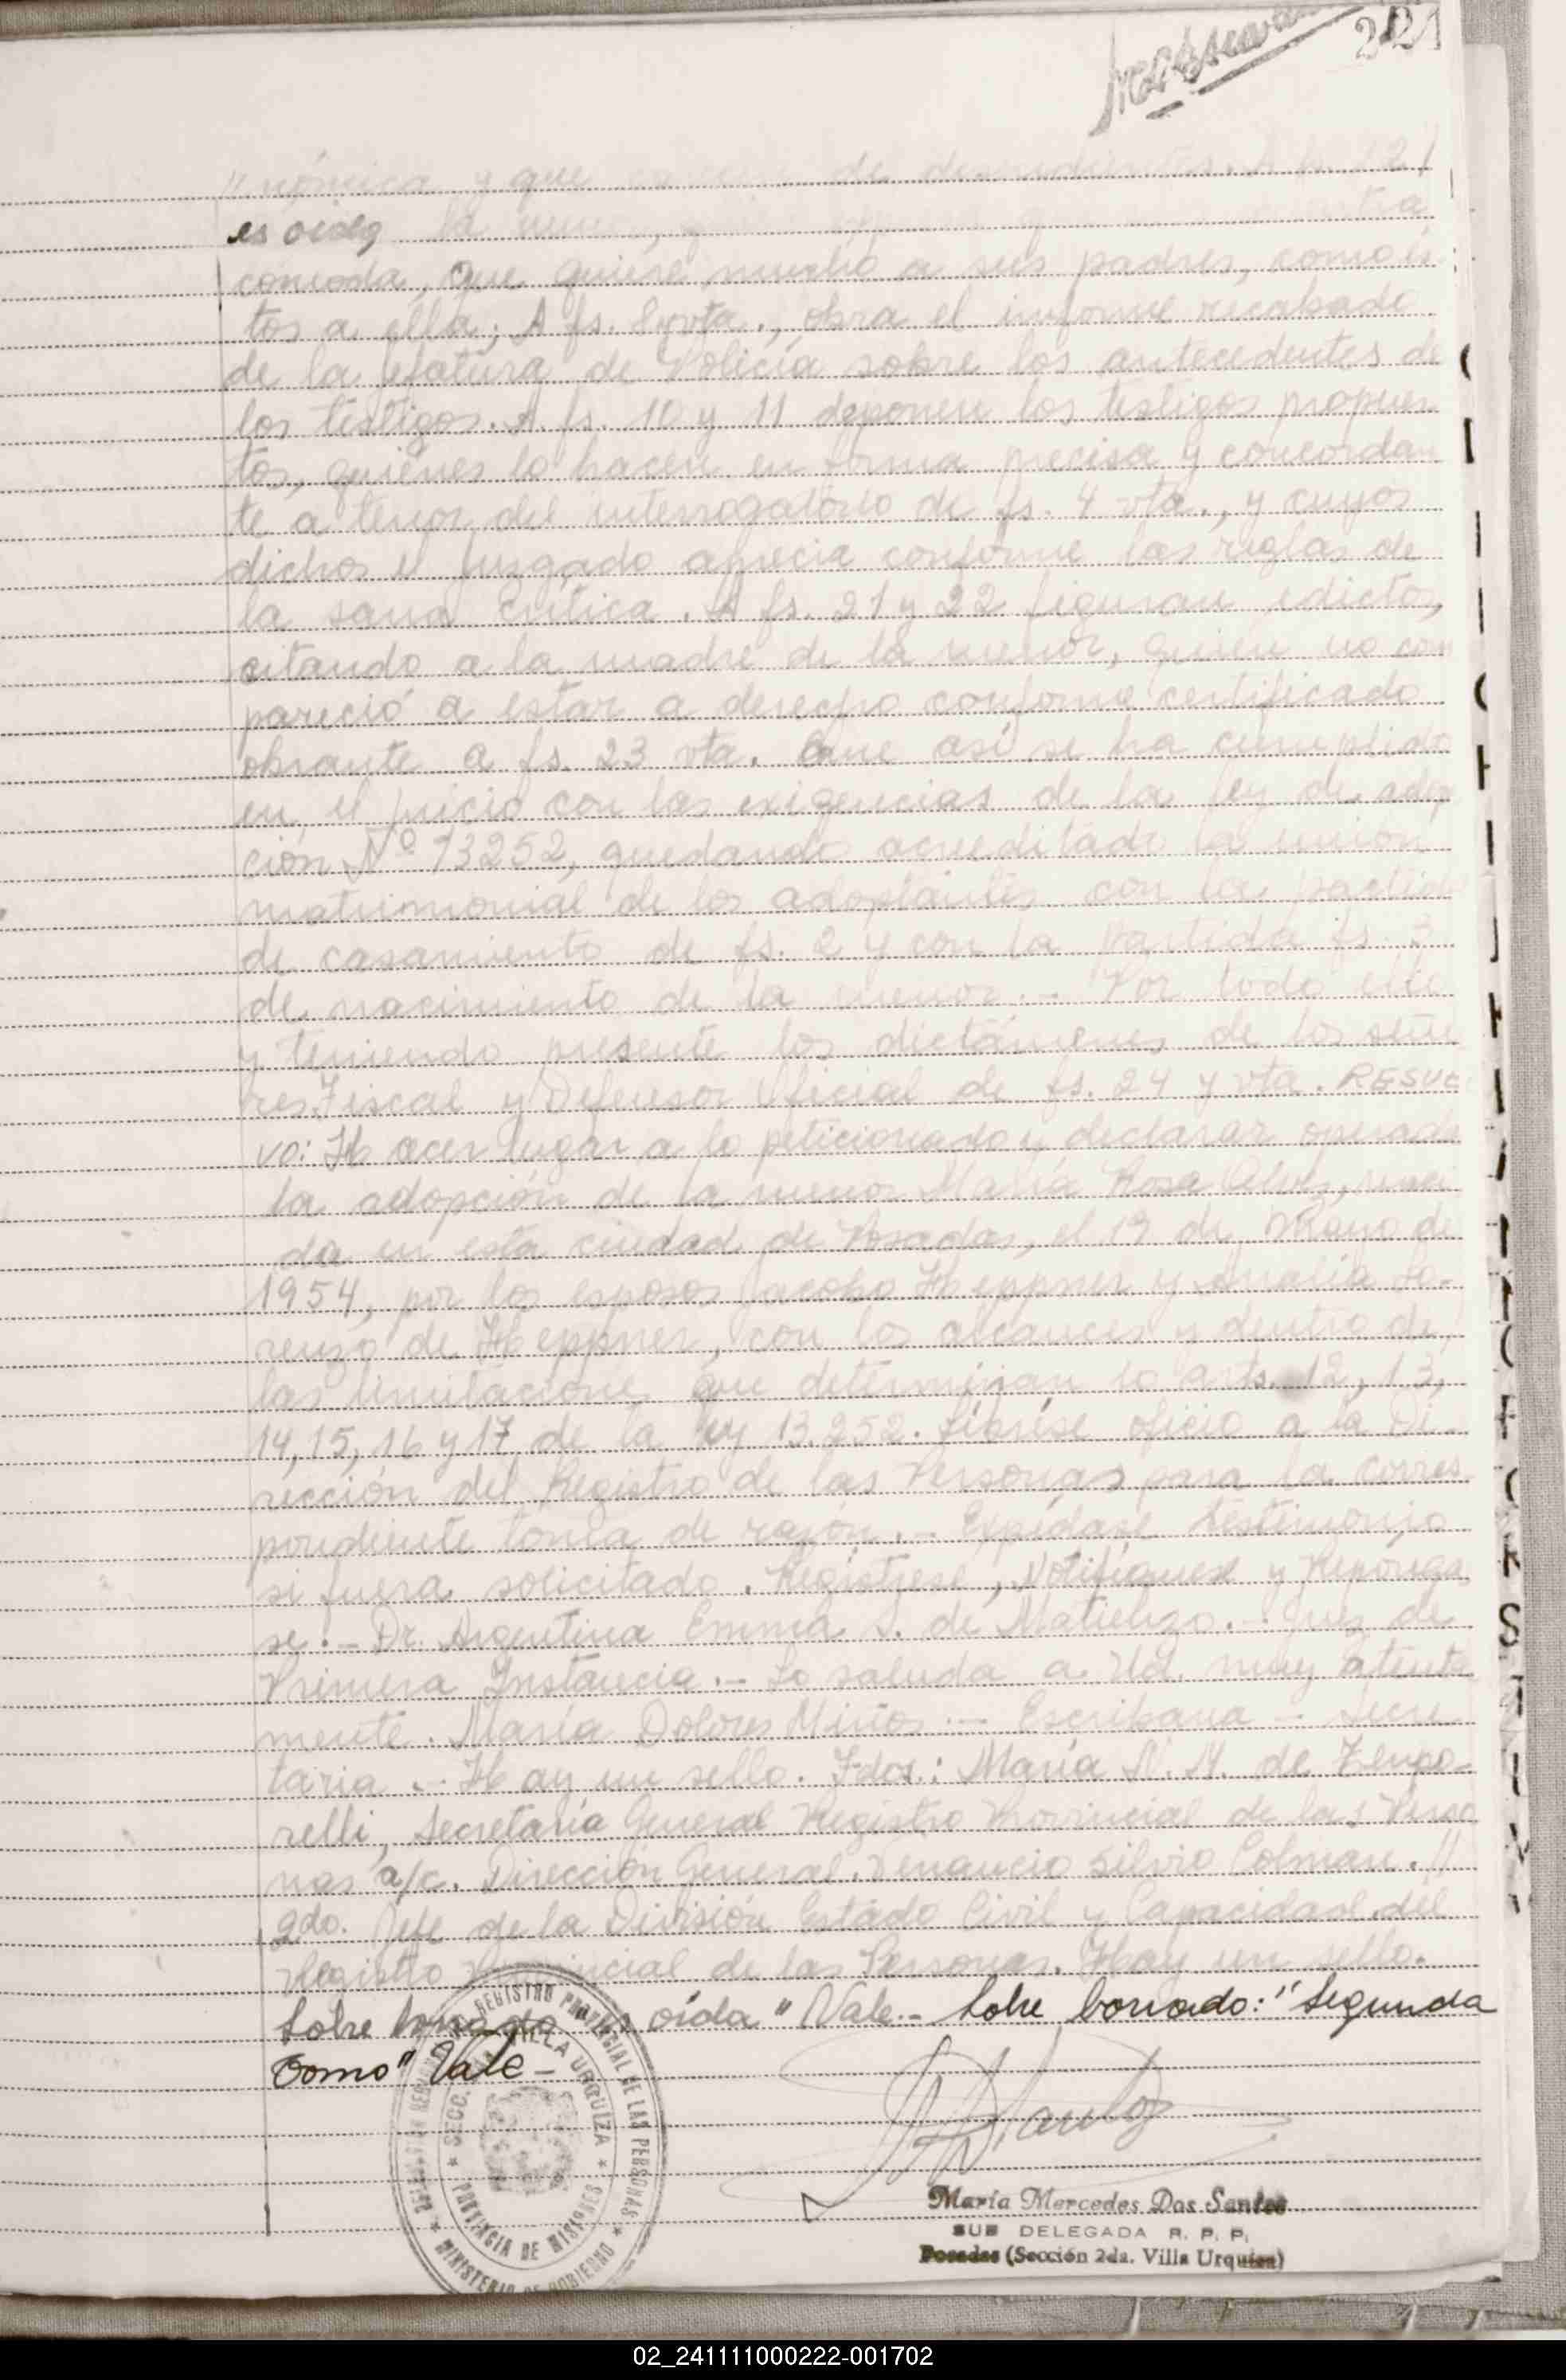 221
// nómica y que de descendientes. A fs.
es oída la menor,
cómoda, que quiere mucho a sus padres, como és
tos a ella; A fs. vta., obra el informe recabado
de la Jefatura de Policía sobre los antecedentes de
los testigos. A fs. 10 y 11 deponen los testigos propues
tos, quienes lo hacen en forma precisa y concordan
te a tenor del interrogatorio de fs. 4 vta., y cuyos
dichos el Juzgado aprecia conforme las reglas de
la sana crítica. A fs. 21 y 22 figuran edictos,
citando a la madre de la menor, quien no com
pareció a estar a derecho conforme certificado
obrante a fs. 23 vta. Que así se ha cumplido
en el juicio con las exigencias de la ley de adop
ción Nº 13252, quedando acreditado la unión
matrimonial de los adoptantes con la partida
de casamiento de fs. 2 y con la partida fs. 3
de nacimiento de la menor.- Por todo ello
y teniendo presente los dictámenes de los seño
res Fiscal y Defensor Oficial de fs. 24 y vta. RESUEL
VO: Hacer lugar a lo peticionado y declarar operada
la adopción de la menor María Rosa naci
da en esta ciudad de Posadas, el 19 de Mayo de
1954, por los esposos Jacobo Heppner y Amalia Lo-
renzo de Heppner, con los alcances y dentro de
las limitaciones que determinan lo arts. 12, 13,
14, 15, 16 y 17 de la ley 13.252. Líbrese oficio a la Di-
rección del Registro de las Personas para la corres
pondiente toma de razón.- Expídase testimonio
si fuera solicitado. Regístrese, Notifíquese y Repónga
se.- Dr. Argentina Emma S. de Matienzo.- Juez de
Primera Instancia.- Lo saluda a Ud. muy atenta
mente. María Dolores Miño.- Escribana - Secre
taria.- Hay un sello. Fdos.: María N. M. de
relli, Secretaria General Registro Provincial de las Perso
nas a/c. Dirección General. Venancio Silvio Colman. //
2do. Jefe de la División Estado Civil y Capacidad del
Registro Provincial de las Personas. Hay un sello.
Sobre borrado oída" Vale.- Sobre borrado: "Segunda
como" Vale-
REGISTRO PROVINCIAL DE LAS PERSONAS * MINISTERIO DE GOBIERNO *
SECC. VILLA URQUIZA * PROVINCIA DE MISIONES *
María Mercedes Dos Santos
SUB DELEGADA R. P. P.
Posadas (Sección 2da. Villa Urquiza)
02_241111000222-001702